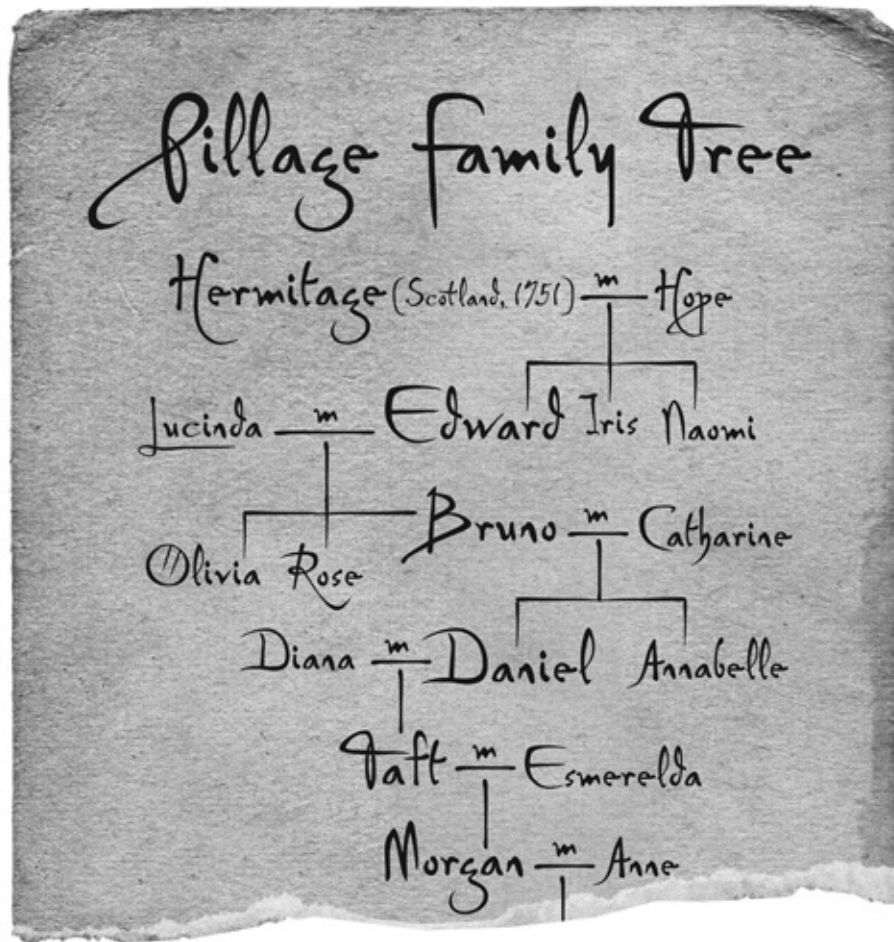 Pillage Family Tree
Hermitage (Scotland, 1751) m Hope
Lucinda m Edward Iris Naomi
Bruno m Catharine
Olivia Rose
Diana m Daniel Annabelle
Taft m Esmerelda
Morgan m Anne